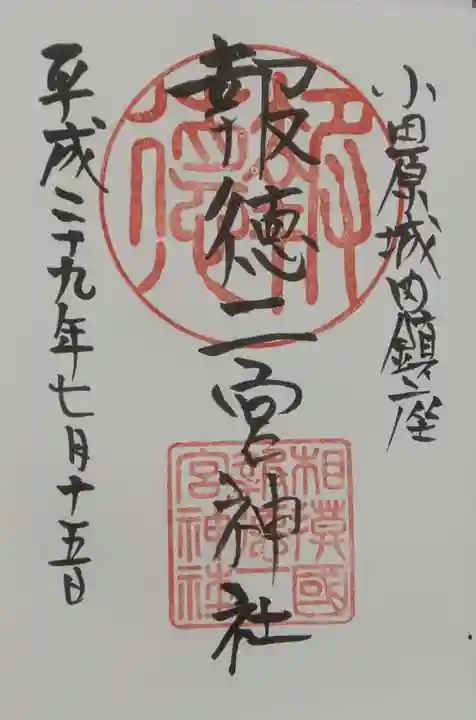 小田原城内鎮座
報徳
報徳二宮神社
相模國
報徳二
宮神社
平成二十九年七月十五日